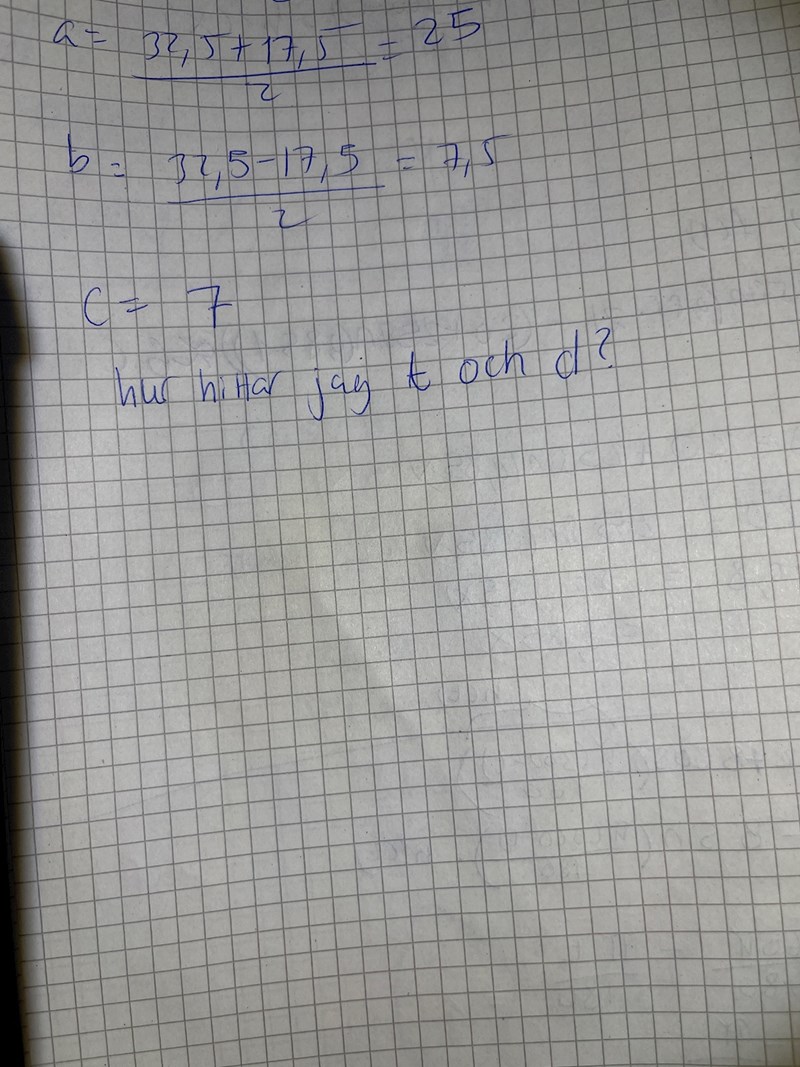 a = 32,5+17,5 / 2 = 25
b = 32,5-17,5 / 2 = 7,5
C = 7
hur hittar jag t och d?